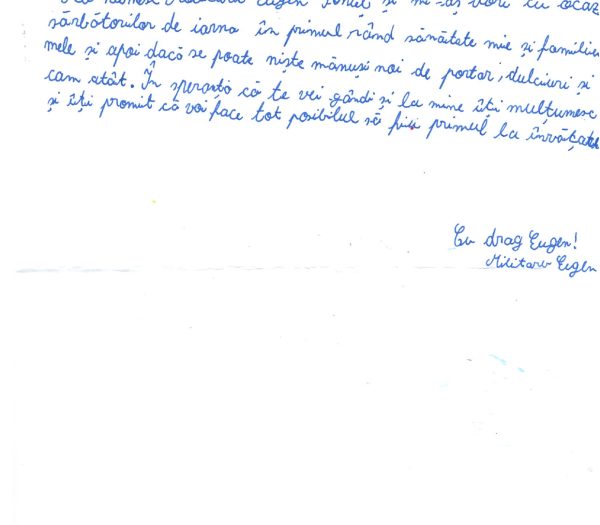 Eugen Ionuț și mi-aș dori cu ocaz
sărbătorilor de iarna în primul rând sănătate mie și familiei
mele și apoi dacă se poate niște mănuși noi de portar, dulciuri și
cam atât. În speranța că te vei gândi și la mine îți mulțumesc
și îți promit că voi face tot posibilul să fiu primul la învățat
Cu drag Eugen!
Militaru Eugen